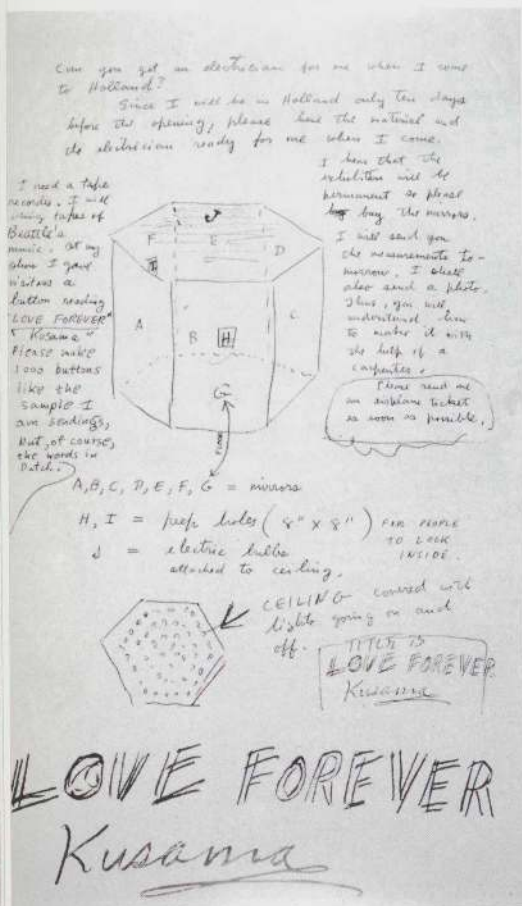 Can you get an electrician for me when I come
to Holland?
Since I will be in Holland only ten days
before the opening, please have the material and
the electrician ready for me when I come.
I need a tape
recorder. I will
bring tapes of
Beattle's
music. At my
show I gave
visitors a
button reading
"LOVE FOREVER"
"Kusama"
Please make
1000 buttons
like the
sample I
am sending,
but, of course,
the words in
Dutch.
I hear that the
exhibition will be
permanent so please
buy the mirrors.
I will send you
the measurements to-
morrow. I shall
also send a photo.
Thus, you will
understand how
to make it with
the help of a
carpenter.
Please send me
an airplane ticket
as soon as possible.
J
F E D
I
A B H C
G
FLOOR
A, B, C, D, E, F, G = mirrors
H, I = peep holes (8" x 8") FOR PEOPLE
TO LOOK
INSIDE.
J = electric bulbs
attached to ceiling.
CEILING covered with
lights going on and
off.
TITLE IS
LOVE FOREVER
Kusama
LOVE FOREVER
Kusama